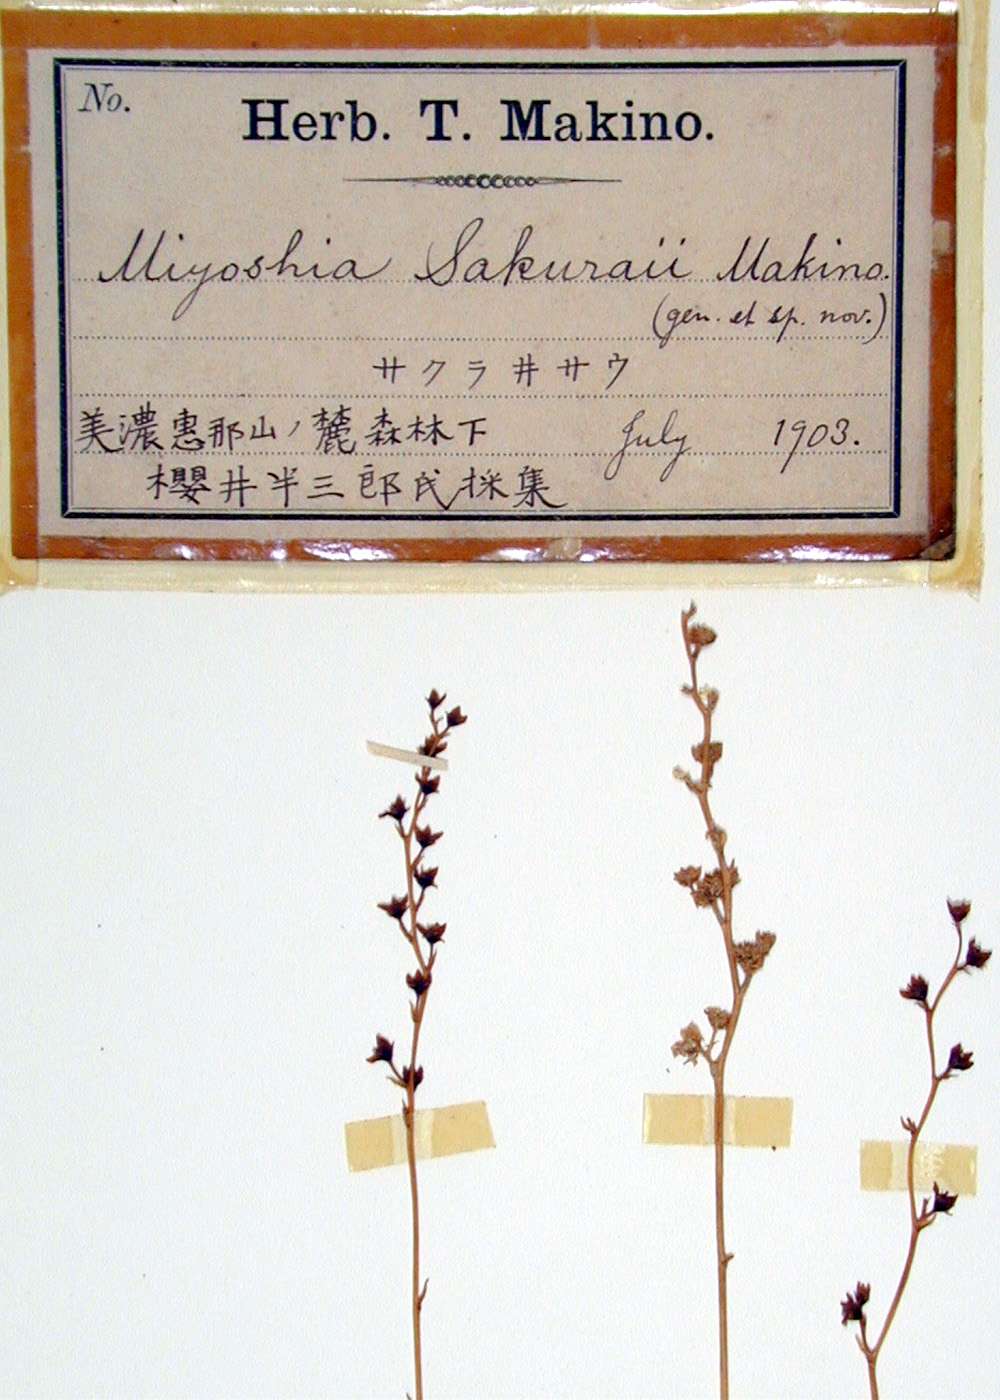 No.
Herb. T. Makino.
Miyoshia Sakuraii Makino.
(gen. et sp. nov.)
サクラ井サウ
美濃惠那山ノ麓森林下 July 1903.
櫻井半三郎氏採集